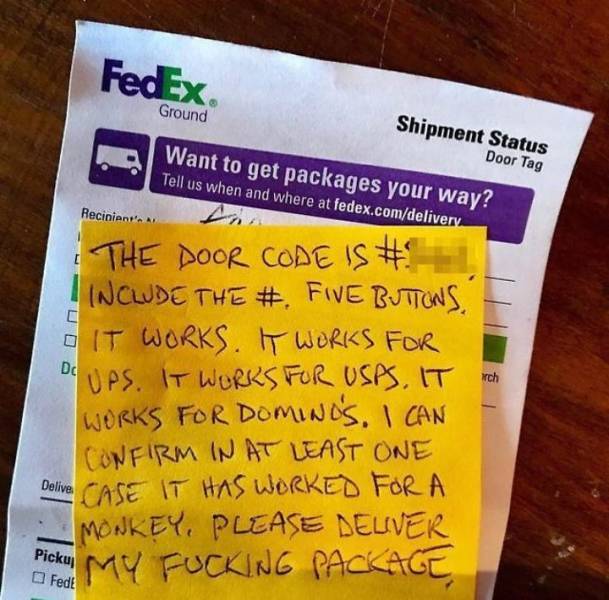 FedEx®
Ground
Shipment Status
Door Tag
Want to get packages your way?
Tell us when and where at fedex.com/delivery
Recipient's
THE DOOR CODE IS #
INCLUDE THE #. FIVE BUTTONS.
IT WORKS. IT WORKS FOR
UPS. IT WORKS FOR USPS. IT
WORKS FOR DOMINO'S. I CAN
CONFIRM IN AT LEAST ONE
CASE IT HAS WORKED FOR A
MONKEY. PLEASE DELIVER
MY FUCKING PACKAGE.